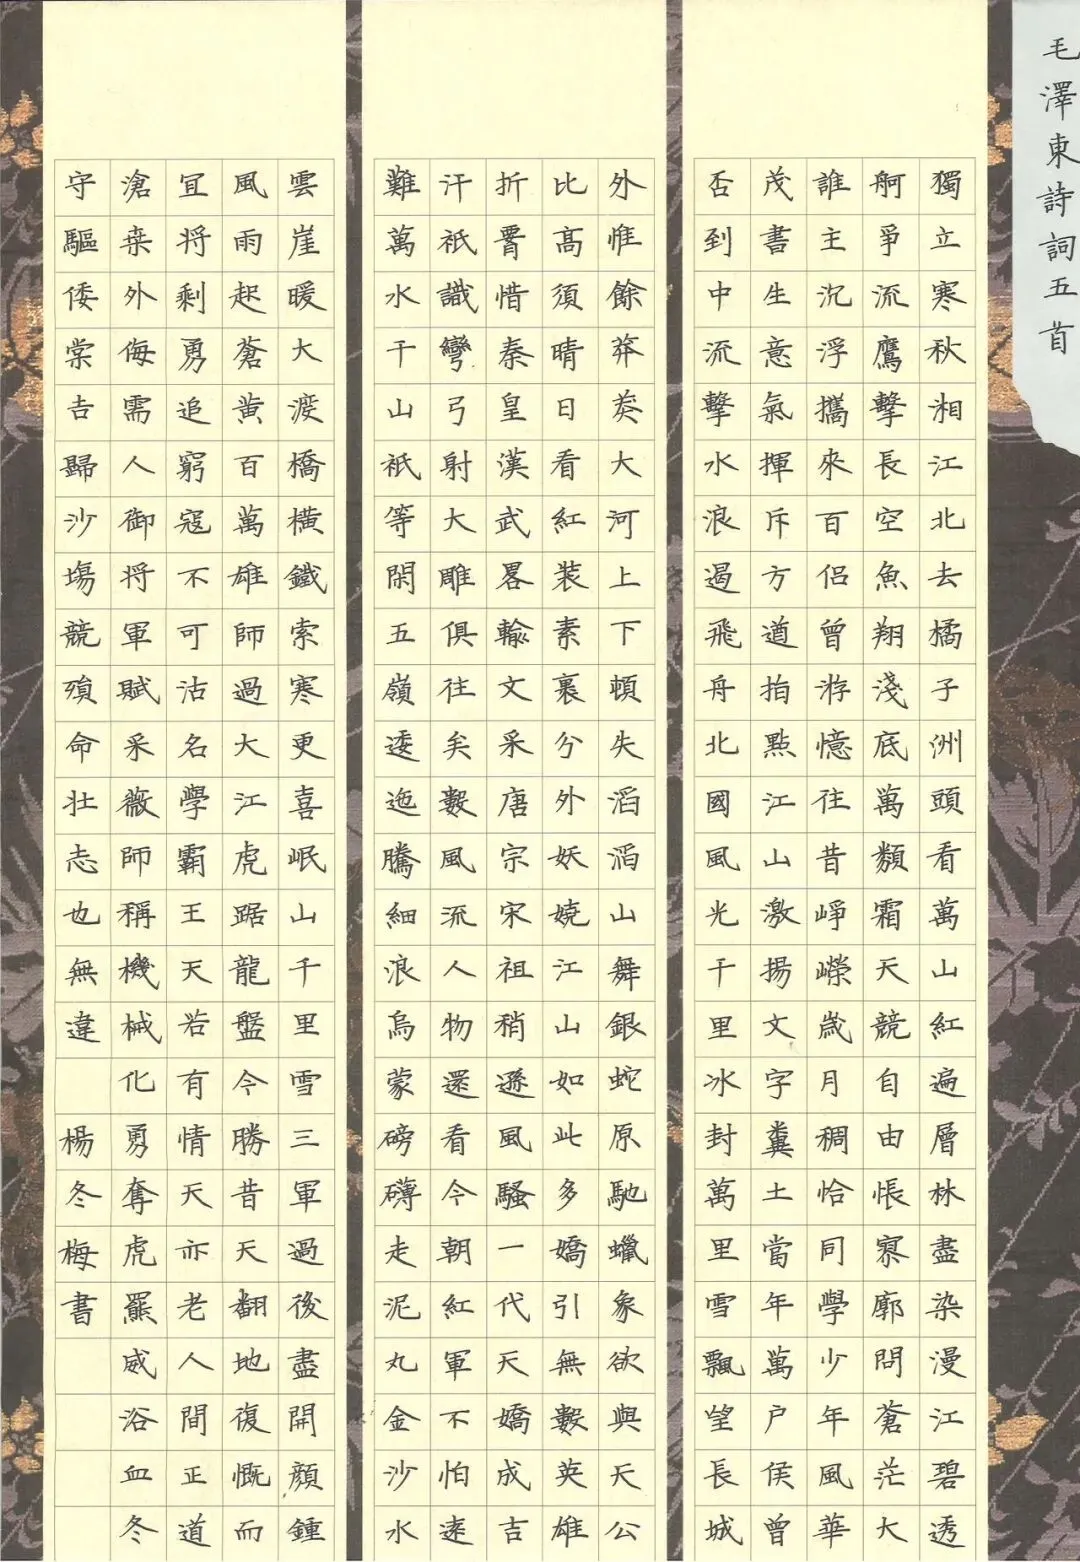 毛澤東詩詞五首
獨立寒秋湘江北去橘子洲頭看萬山紅遍層林盡染漫江碧透
舸爭流鷹擊長空魚翔淺底萬類霜天競自由悵寥廓問蒼茫大
誰主沉浮攜來百侶曾游憶往昔崢嶸歲月稠恰同學少年風華
茂書生意氣揮斥方遒指點江山激揚文字糞土當年萬户侯曾
否到中流擊水浪遏飛舟北國風光千里冰封萬里雪飄望長城
外惟餘莽莽大河上下頓失滔滔山舞銀蛇原馳蠟象欲與天公
比高須晴日看紅裝素裹分外妖嬈江山如此多嬌引無數英雄
折腰惜秦皇漢武畧輸文采唐宗宋祖稍遜風騷一代天嬌成吉
汗祇識彎弓射大雕俱往矣數風流人物還看今朝紅軍不怕遠
難萬水千山祇等閑五嶺逶迤騰細浪烏蒙磅礴走泥丸金沙水
雲崖暖大渡橋橫鐵索寒更喜岷山千里雪三軍過後盡開顏鍾
風雨起蒼黄百萬雄師過大江虎踞龍盤今勝昔天翻地復慨而
宜將剩勇追窮寇不可沽名學霸王天若有情天亦老人間正道
滄桑外侮需人御將軍賦采薇師稱機械化勇奪虎羆威浴血冬
守驅倭棠吉歸沙場競殞命壯志也無違 楊冬梅書